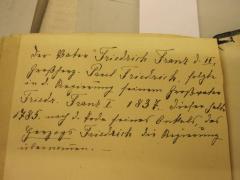 Der Vater Friedrich Franz d. II,
Großherz. Paul Friedrich, folgte
in d. Regierung seinem Großvater
Friedr. Franz I. 1837. Dieser hatte
1785 nach d. Tode seines Onkels, des
Herzogs Friedrich die Regierung
übernommen. —